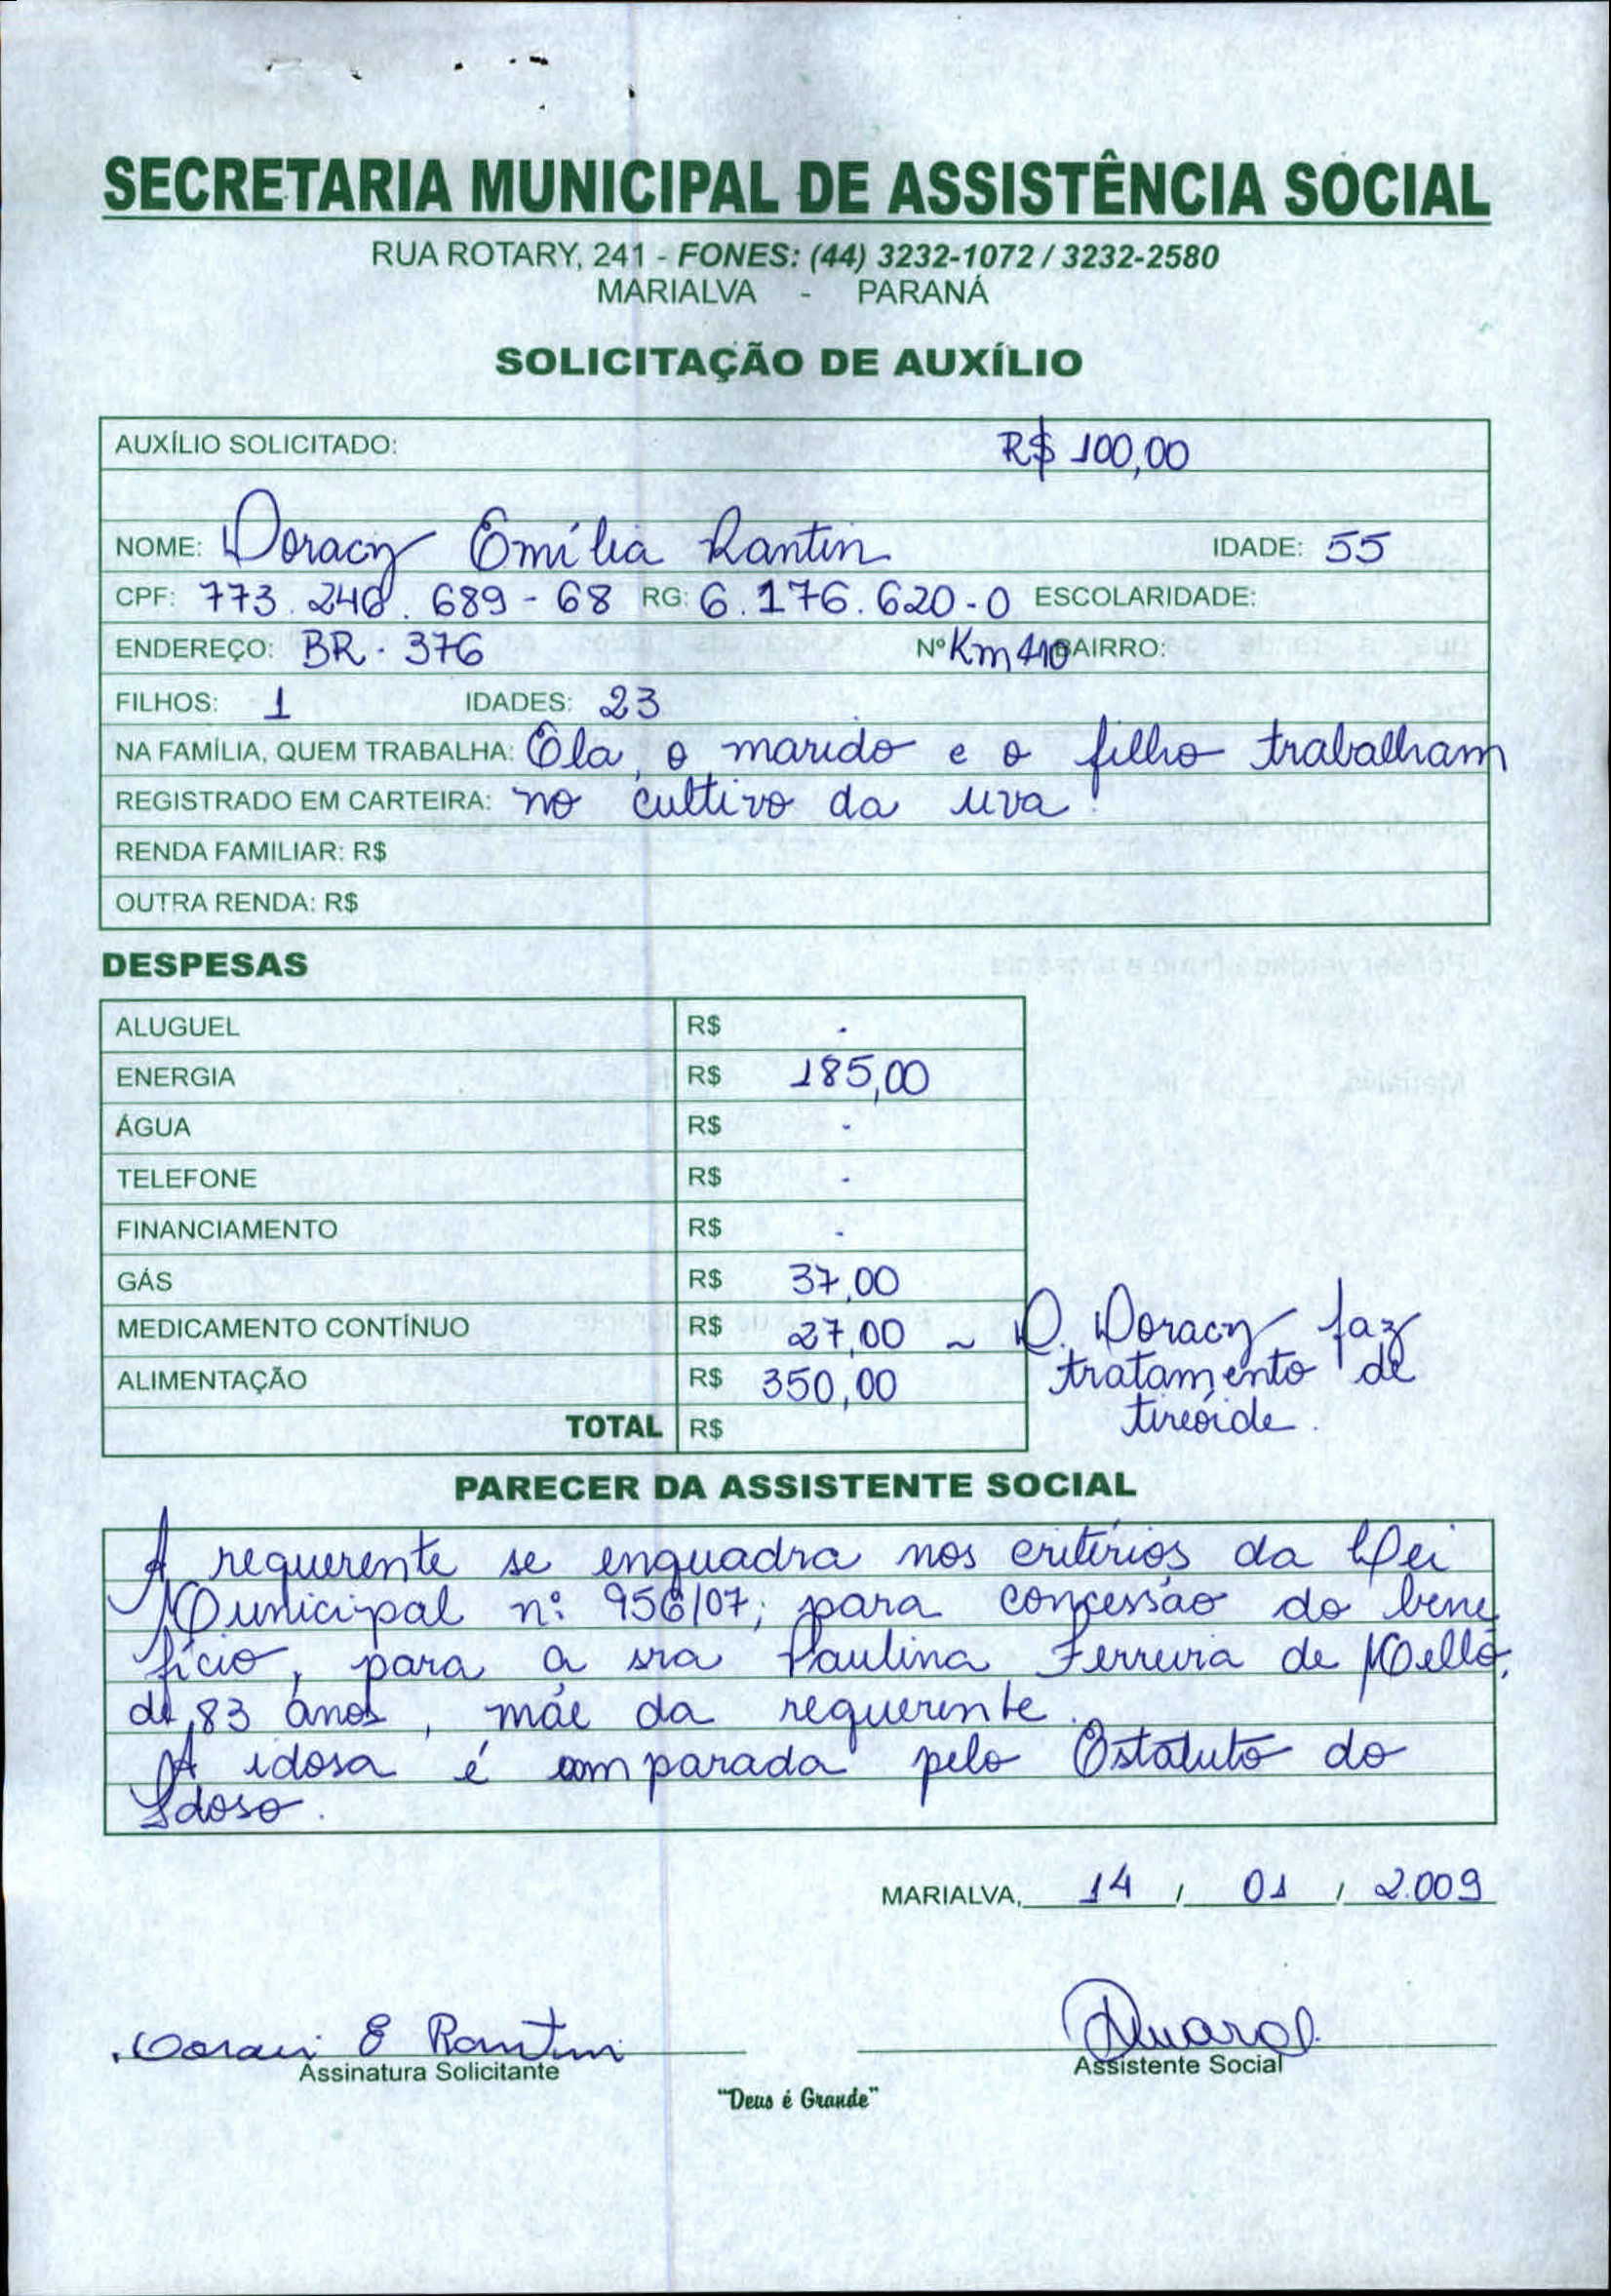 SECRETARIA MUNICIPAL DE ASSISTÊNCIA SOCIAL
RUA ROTARY, 241 - FONES: (44) 3232-1072 / 3232-2580
MARIALVA - PARANÁ
SOLICITAÇÃO DE AUXÍLIO
AUXÍLIO SOLICITADO: R$ 100,00
NOME: Doracy Emília Rantin IDADE: 55
CPF: 773.240.689-68 RG: 6.176.620-0 ESCOLARIDADE:
ENDEREÇO: BR. 376 Nº Km 410 BAIRRO:
FILHOS: 1 IDADES: 23
NA FAMÍLIA, QUEM TRABALHA: Ela, o marido e o filho trabalham
REGISTRADO EM CARTEIRA: no cultivo da uva.
RENDA FAMILIAR: R$
OUTRA RENDA: R$
DESPESAS
ALUGUEL R$ -
ENERGIA R$ 185,00
ÁGUA R$ -
TELEFONE R$ -
FINANCIAMENTO R$ -
GÁS R$ 37,00
MEDICAMENTO CONTÍNUO R$ 27,00 ~ D. Doracy faz
tratamento de
ALIMENTAÇÃO R$ 350,00
tireóide.
TOTAL R$
PARECER DA ASSISTENTE SOCIAL
A requerente se enquadra nos critérios da Lei
Municipal nº 956/07, para concessão do bene
fício, para a sra Paulina Ferreira de Mello,
de 83 anos, mãe da requerente.
A idosa é amparada pelo Estatuto do
Idoso.
MARIALVA, 14 / 01 / 2.009
Doraci E Rantin
Assinatura Solicitante
Assistente Social
"Deus é Grande"